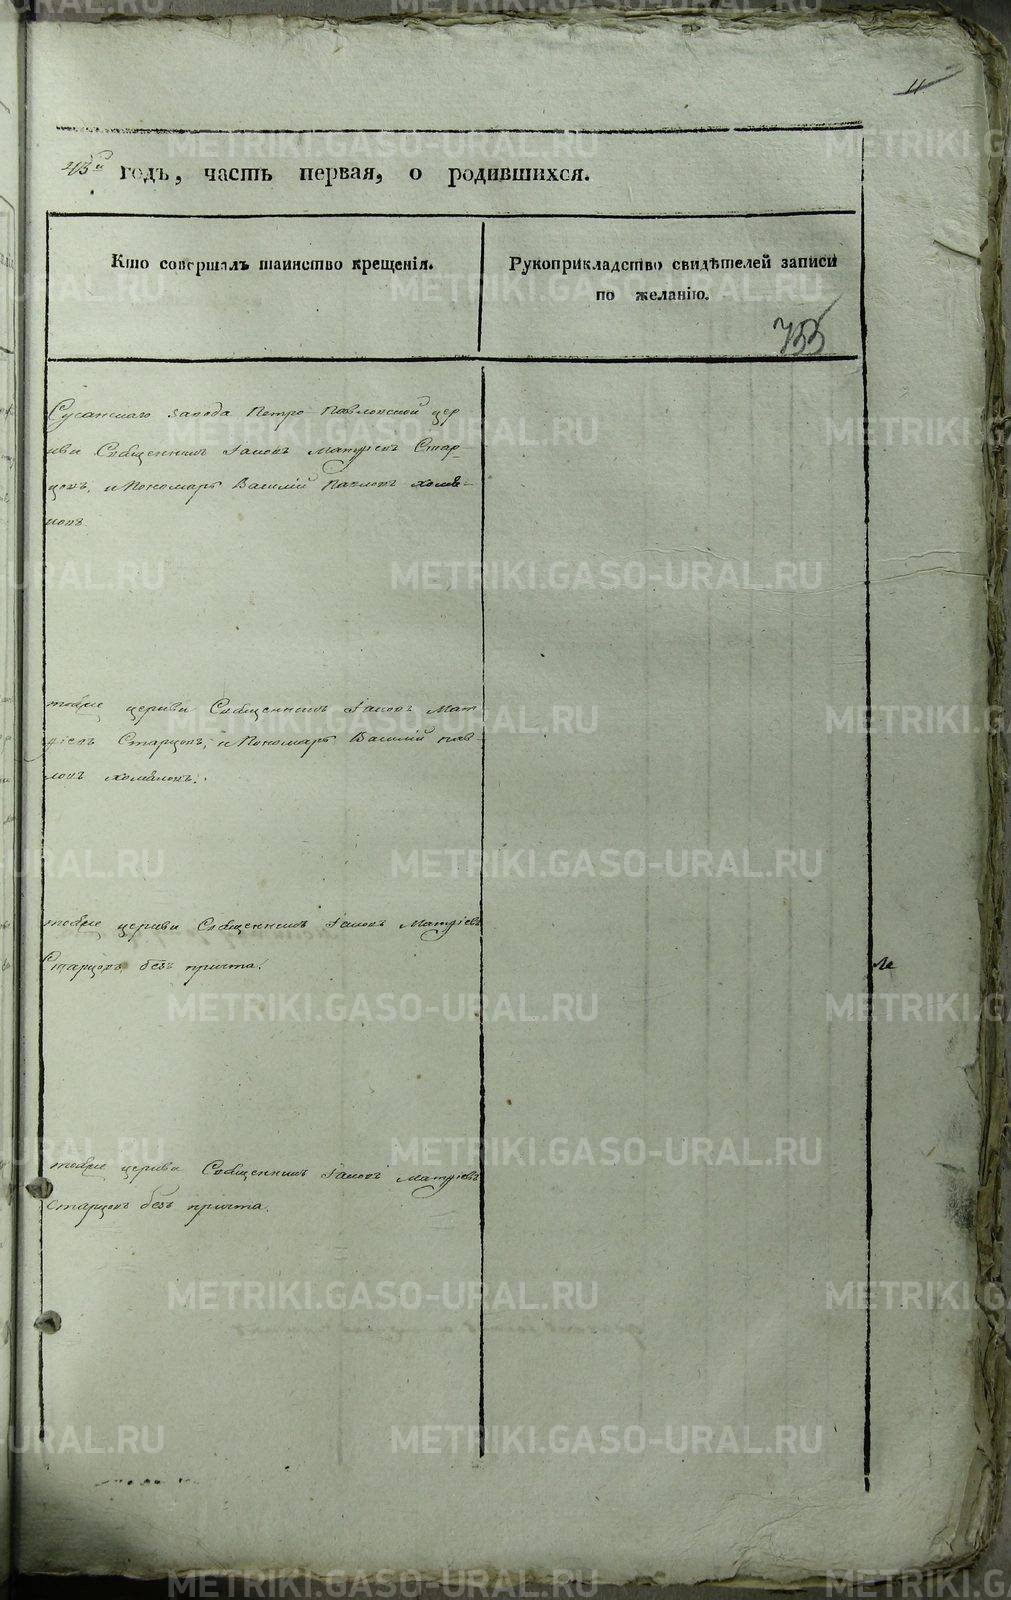 11
43й годъ, часть первая, о родившихся.
Кто совершалъ таинство крещенія.
Рукоприкладство свидѣтелей записи
по желанію.
755
Сусанскаго завода Петро Павловской цер
кви Священникъ Іаковъ Матѳіевъ Стар-
цовъ, и Пономарь Василій Павловъ Хомя-
ковъ
тойже церкви Священникъ Іаковъ Мат
ѳіевъ Старцовъ, и Пономарь Василій Пав-
ловъ Хомяковъ.
тойже церкви Священникъ Іаковъ Матѳіевъ
Старцовъ, безъ причта.
тойже церкви Священникъ Іаковъ Матѳіевъ
Старцовъ безъ причта.
METRIKI.GASO-URAL.RU